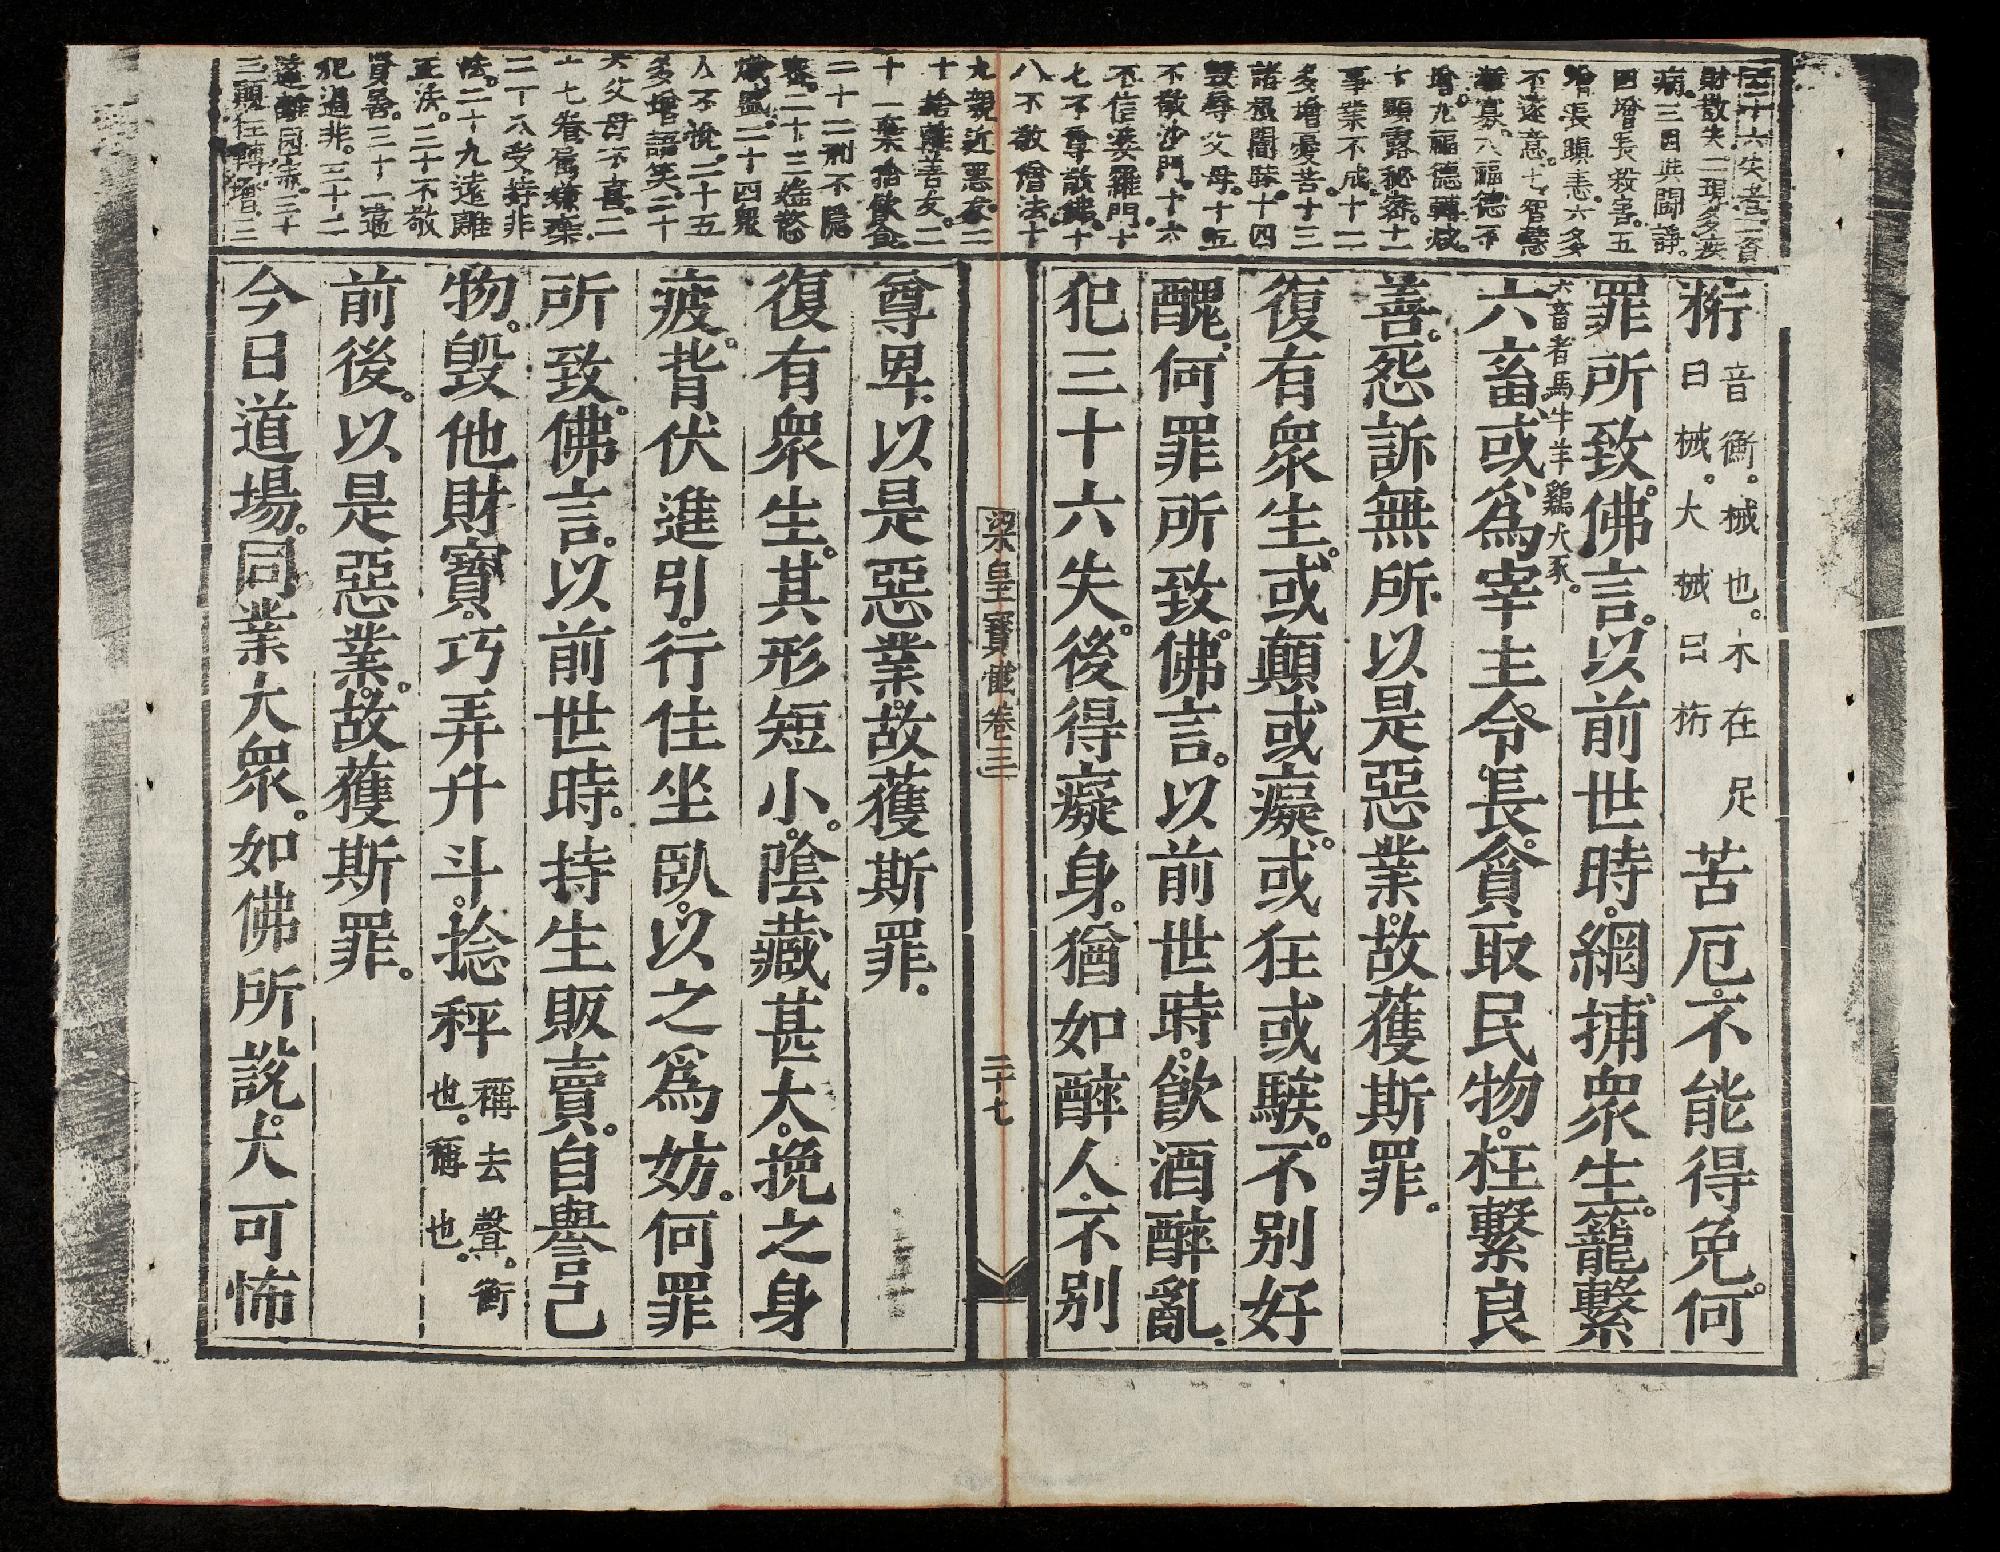 三十六失者一資
財散失二現多疾
病。三因興鬪諍。
四增長殺害。五
增長瞋恚。六多
不遂意。七智慧
漸寡。八福德不
增。九福德轉減。
十顯露秘密。十一
事業不成。十二
多增憂苦。十三
諸根闇昧。十四
毀辱父母。十五
不敬沙門。十六
不信婆羅門十
七不尊敬佛。十
八不敬僧法十
九親近惡友。二
十捨離善友。二
十一棄捨飲食
二十二形不隱
密。二十三婬慾
熾盛。二十四眾
人不悅。二十五
多增語笑。二十
六父母不喜。二
十七眷屬嫌棄。
二十八受持非
法。二十九遠離
正法。三十不敬
賢善。三十一違
犯過非。三十二
遠離圓寂。三十
三顛狂轉增。三
桁音衡。械也。木在足曰械。大械曰桁苦厄。不能得免。何
罪所致。佛言。以前世時。網捕眾生。籠繫
六畜六畜者馬牛羊雞犬豕。或為宰主令長。貪取民物。枉繫良
善。怨訴無所。以是惡業。故獲斯罪。
復有眾生。或顛或癡。或狂或騃。不別好
醜。何罪所致。佛言。以前世時。飲酒醉亂。
犯三十六失。後得癡身。猶如醉人。不別
梁皇寶懺卷三
二十七
尊卑。以是惡業。故獲斯罪。
復有眾生。其形短小。陰藏甚大。挽之身
疲。背伏進引。行住坐臥。以之為妨。何罪
所致。佛言。以前世時。持生販賣。自譽己
物。毀他財寶。巧弄升斗。捻秤稱去聲。衡也。稱也。
前後。以是惡業。故獲斯罪。
今日道場。同業大眾。如佛所說。大可怖